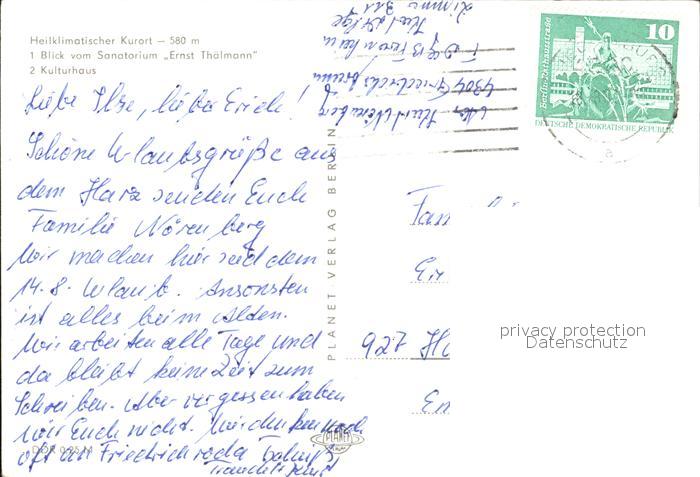 Heilklimatischer Kurort – 580 m
1 Blick vom Sanatorium „Ernst Thälmann"
2 Kulturhaus
Liebe Ilse, lieber Erich!
Schöne Urlaubsgrüße aus
dem Harz senden Euch
Familie Nörenberg
Wir machen hier seit dem
14.8. Urlaub. Ansonsten
ist alles beim Alten.
Wir arbeiten alle Tage und
da bleibt keine Zeit zum
Schreiben. Aber vergessen haben
wir Euch nicht. Wir denken noch
oft an Friedrichroda
PLANET VERLAG BERLIN
PLANET
10
Berlin, Rathausstrasse
DEUTSCHE DEMOKRATISCHE REPUBLIK
a
Kurt
4304
927
privacy protection
Datenschutz